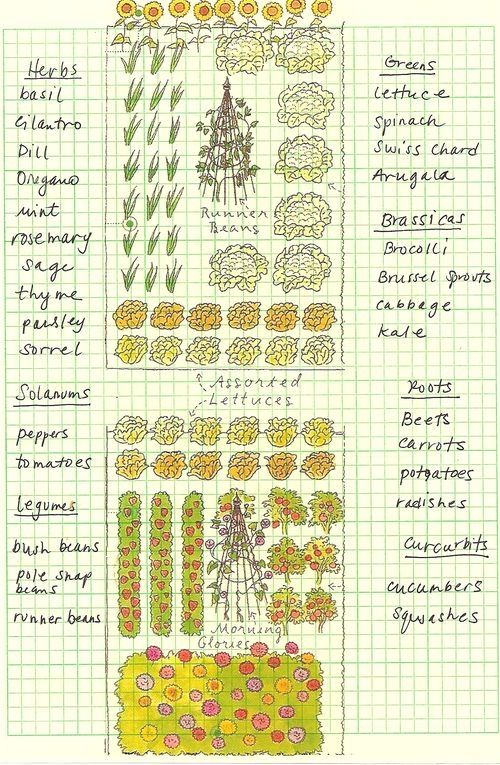 Herbs
basil
Cilantro
Dill
Oregano
mint
rosemary
sage
thyme
parsley
sorrel
Solanums
peppers
tomatoes
Legumes
bush beans
pole snap
beans
runner beans
Runner
Beans
Assorted
Lettuces
Morning
Glories
Greens
lettuce
Spinach
Swiss Chard
Arugala
Brassicas
Brocolli
Brussel Sprouts
cabbage
kale
Roots
Beets
carrots
potgatoes
radishes
Curcurbits
cucumbers
Sqwashes